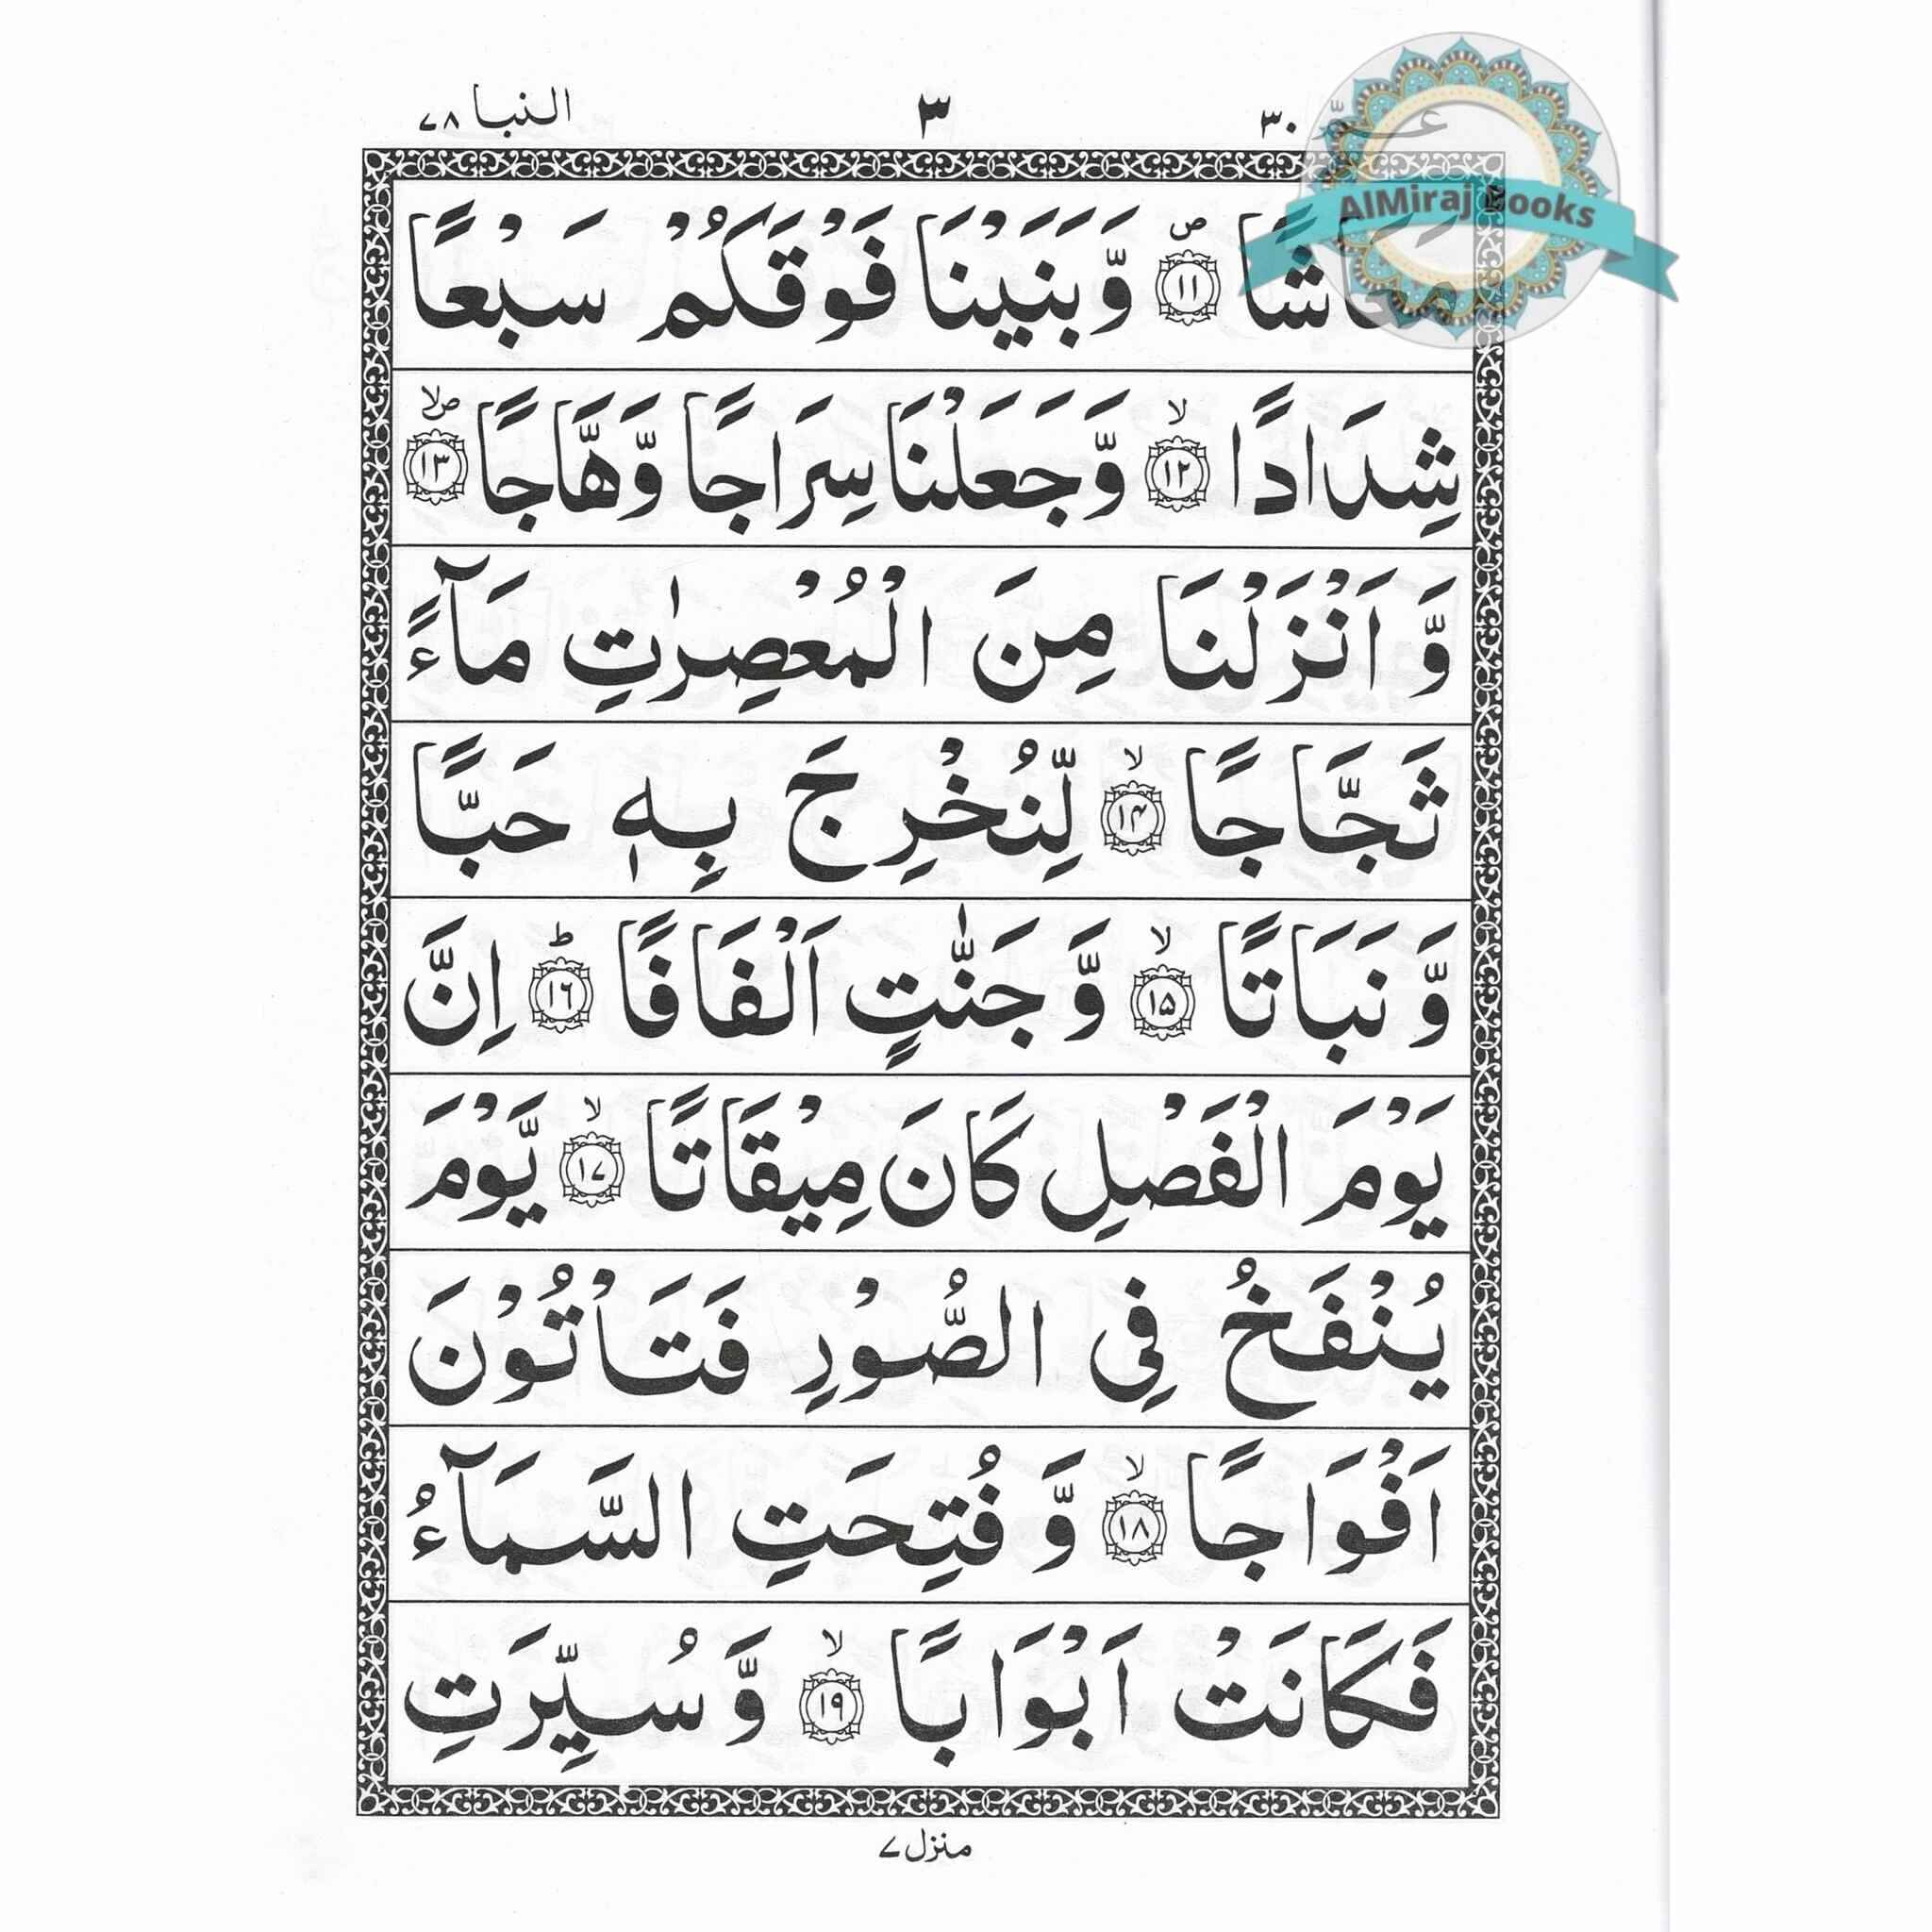 النبا ۷۸ ۳ عم ۳۰
AlMiraj Books
مَعَاشًا ۝۱۱ۙ وَّبَنَيْنَا فَوْقَكُمْ سَبْعًا
شِدَادًا ۝۱۲ۙ وَّجَعَلْنَا سِرَاجًا وَّهَّاجًا ۝۱۳
وَّ اَنْزَلْنَا مِنَ الْمُعْصِرٰتِ مَآءً
ثَجَّاجًا ۝۱۴ۙ لِّنُخْرِجَ بِهٖ حَبًّا
وَّ نَبَاتًا ۝۱۵ۙ وَّ جَنّٰتٍ اَلْفَافًا ۝۱۶ؕ اِنَّ
يَوْمَ الْفَصْلِ كَانَ مِيْقَاتًا ۝۱۷ۙ يَّوْمَ
يُنْفَخُ فِى الصُّوْرِ فَتَاْتُوْنَ
اَفْوَاجًا ۝۱۸ۙ وَّ فُتِحَتِ السَّمَآءُ
فَكَانَتْ اَبْوَابًا ۝۱۹ۙ وَّ سُيِّرَتِ
منزل ۷